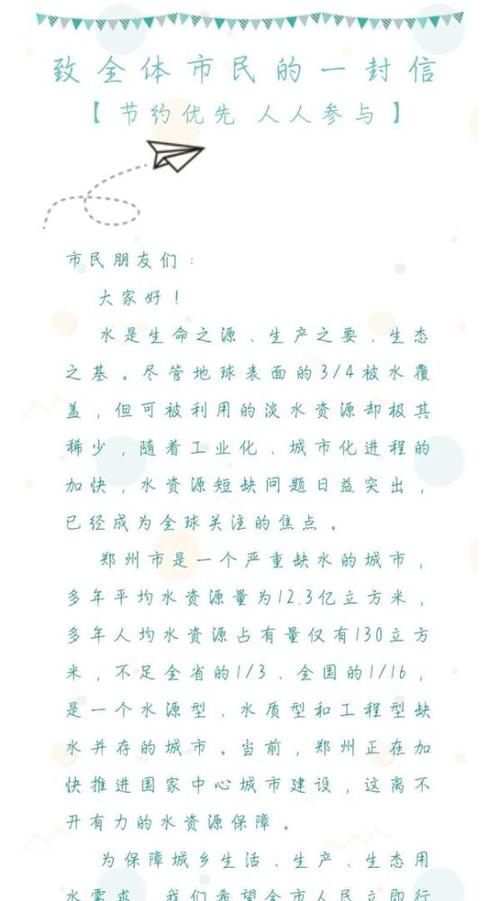 致全体市民的一封信
【节约优先 人人参与】
市民朋友们：
大家好！
水是生命之源、生产之要、生态
之基。尽管地球表面的3/4被水覆
盖，但可被利用的淡水资源却极其
稀少，随着工业化、城市化进程的
加快，水资源短缺问题日益突出，
已经成为全球关注的焦点。
郑州市是一个严重缺水的城市，
多年平均水资源量为12.3亿立方米，
多年人均水资源占有量仅有130立方
米，不足全省的1/3、全国的1/16，
是一个水源型、水质型和工程型缺
水并存的城市。当前，郑州正在加
快推进国家中心城市建设，这离不
开有力的水资源保障。
为保障城乡生活、生产、生态用
水需求，我们希望全市人民立即行